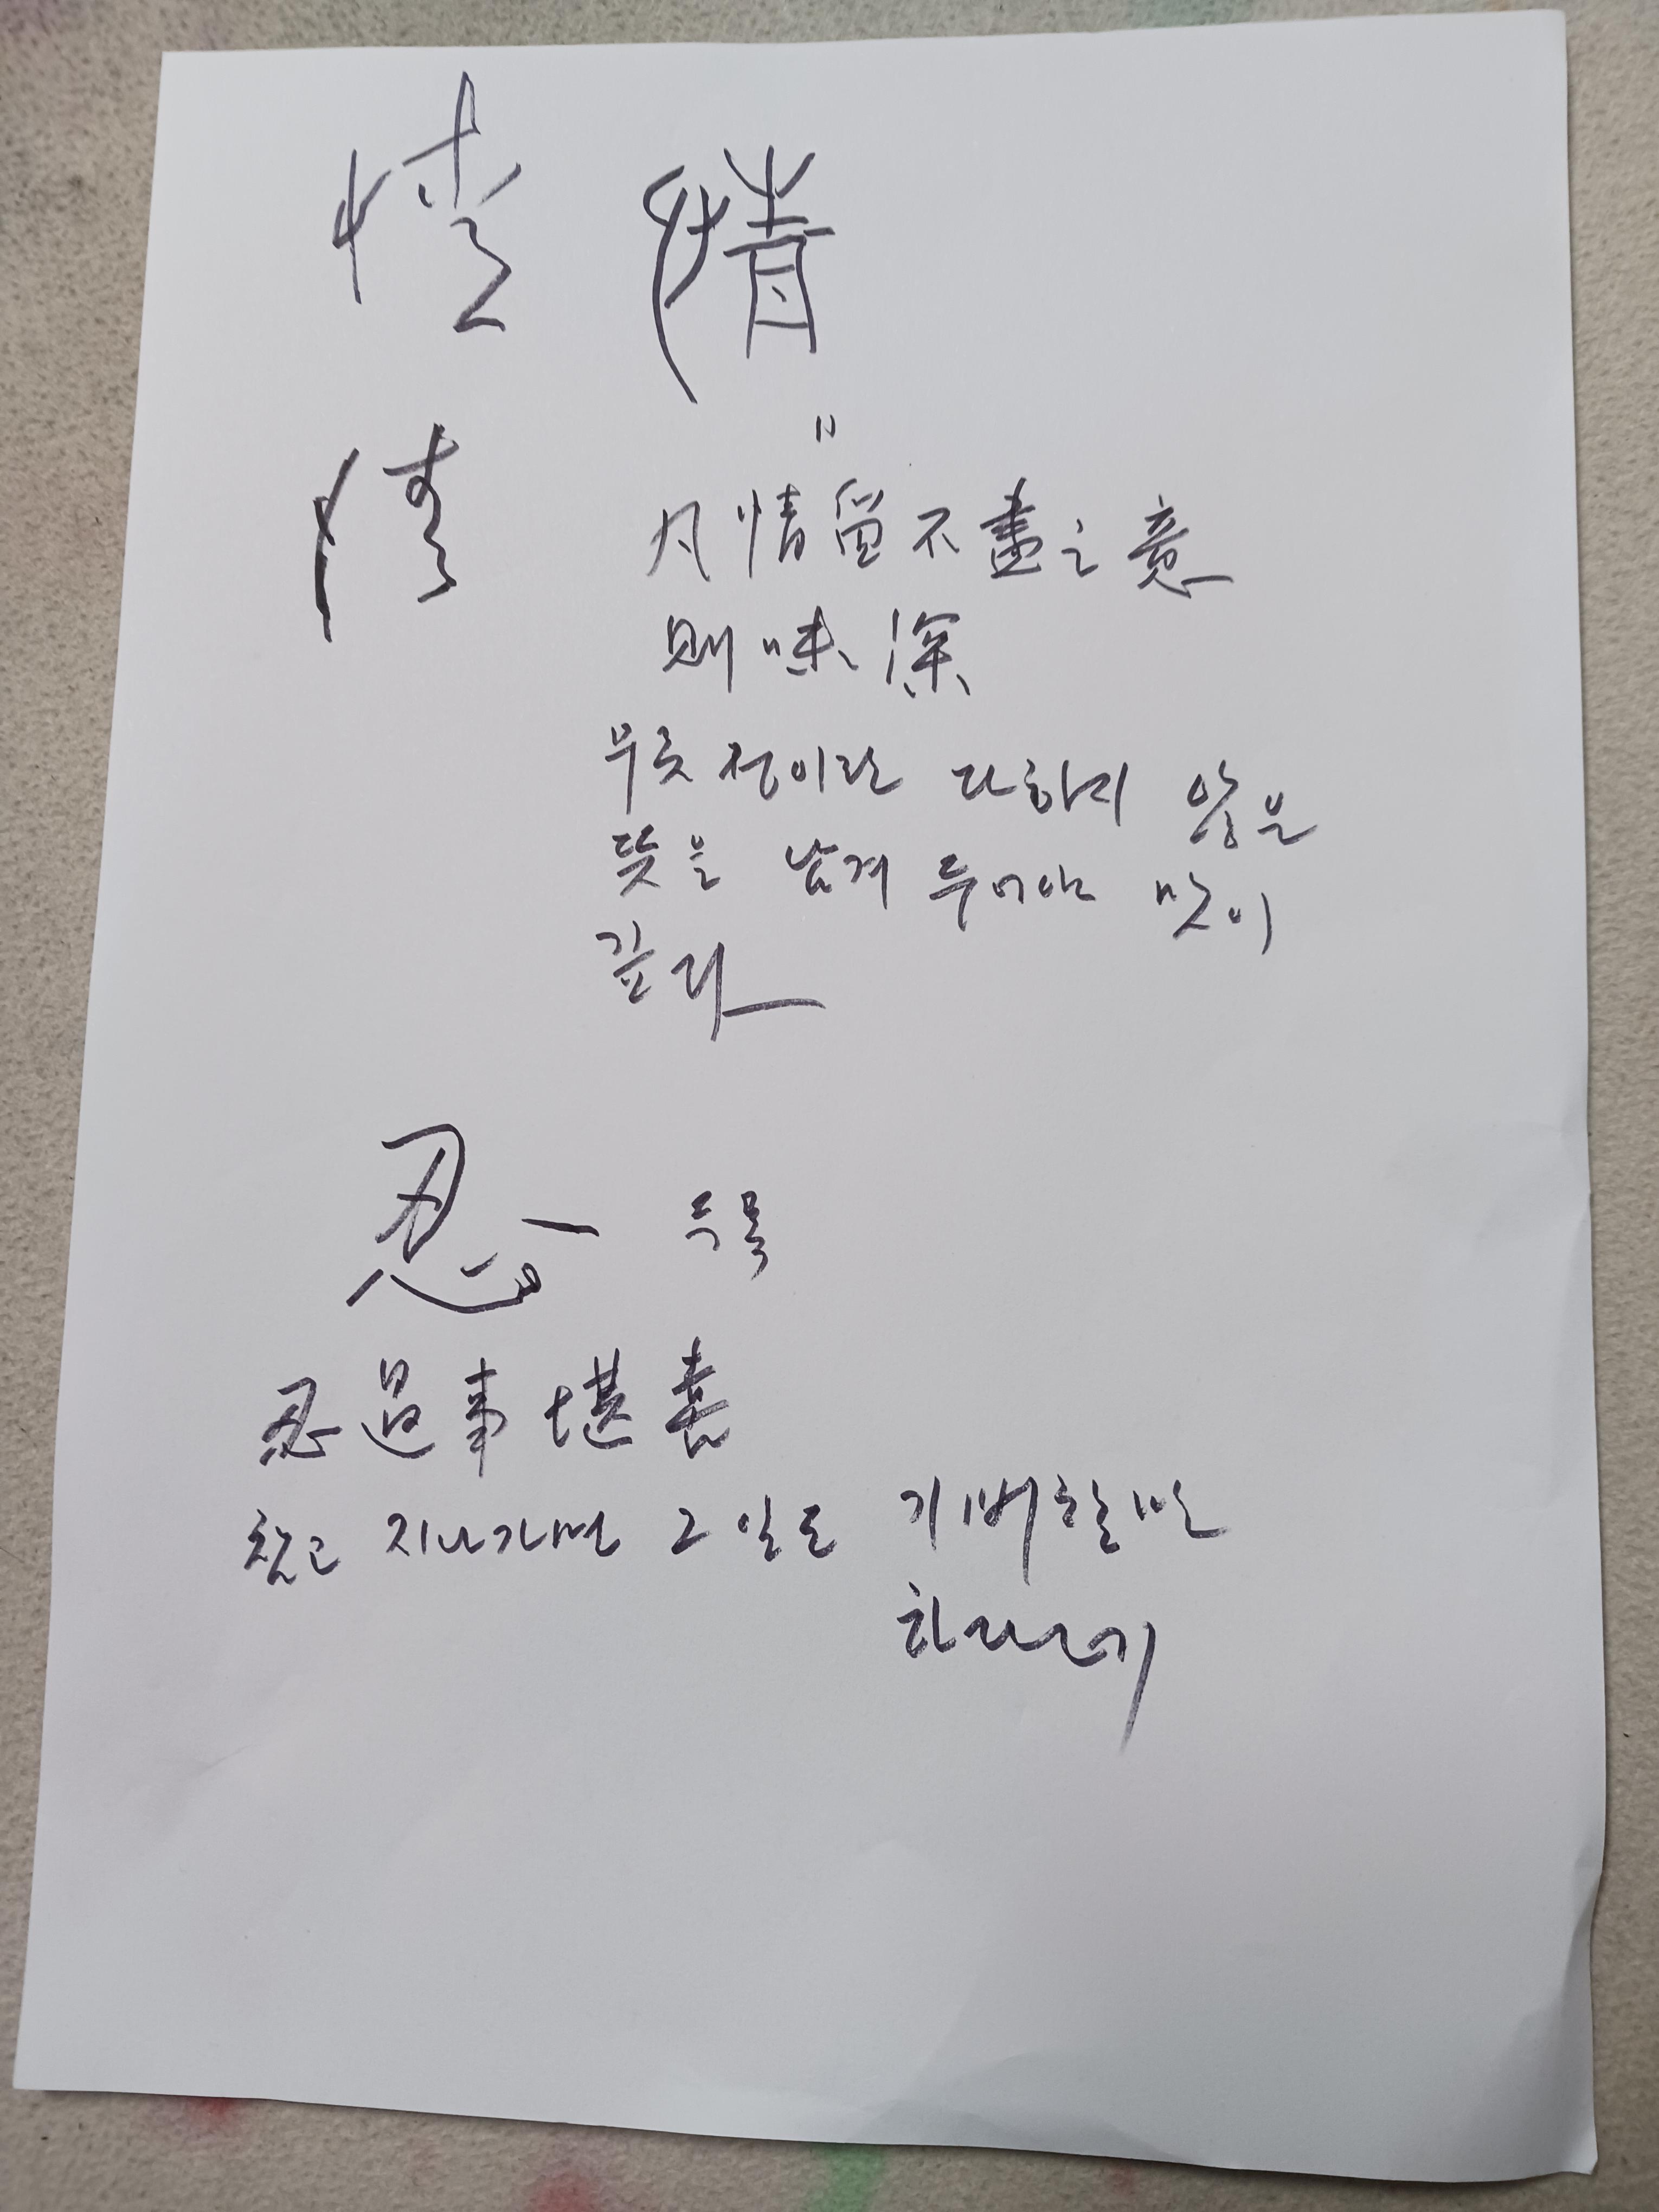 情 情
情
凡情留不盡之意
則味深
무릇 정이란 다하지 않은
뜻을 남겨 두어야 맛이
깊다
忍 두목
忍過事堪喜
참고 지나가면 그 일도 기뻐할만
하다네